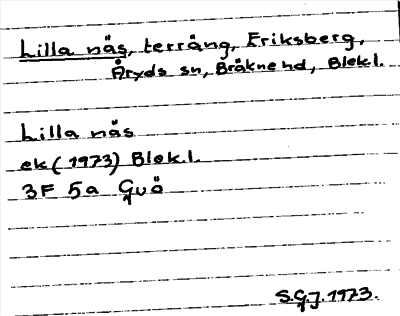 Lilla näs, terräng, Eriksberg,
Åryds sn, Bräkne hd, Blek.l.
Lilla näs
ek (1973) Blek.l.
3F 5a Guö
S.G.J. 1973.